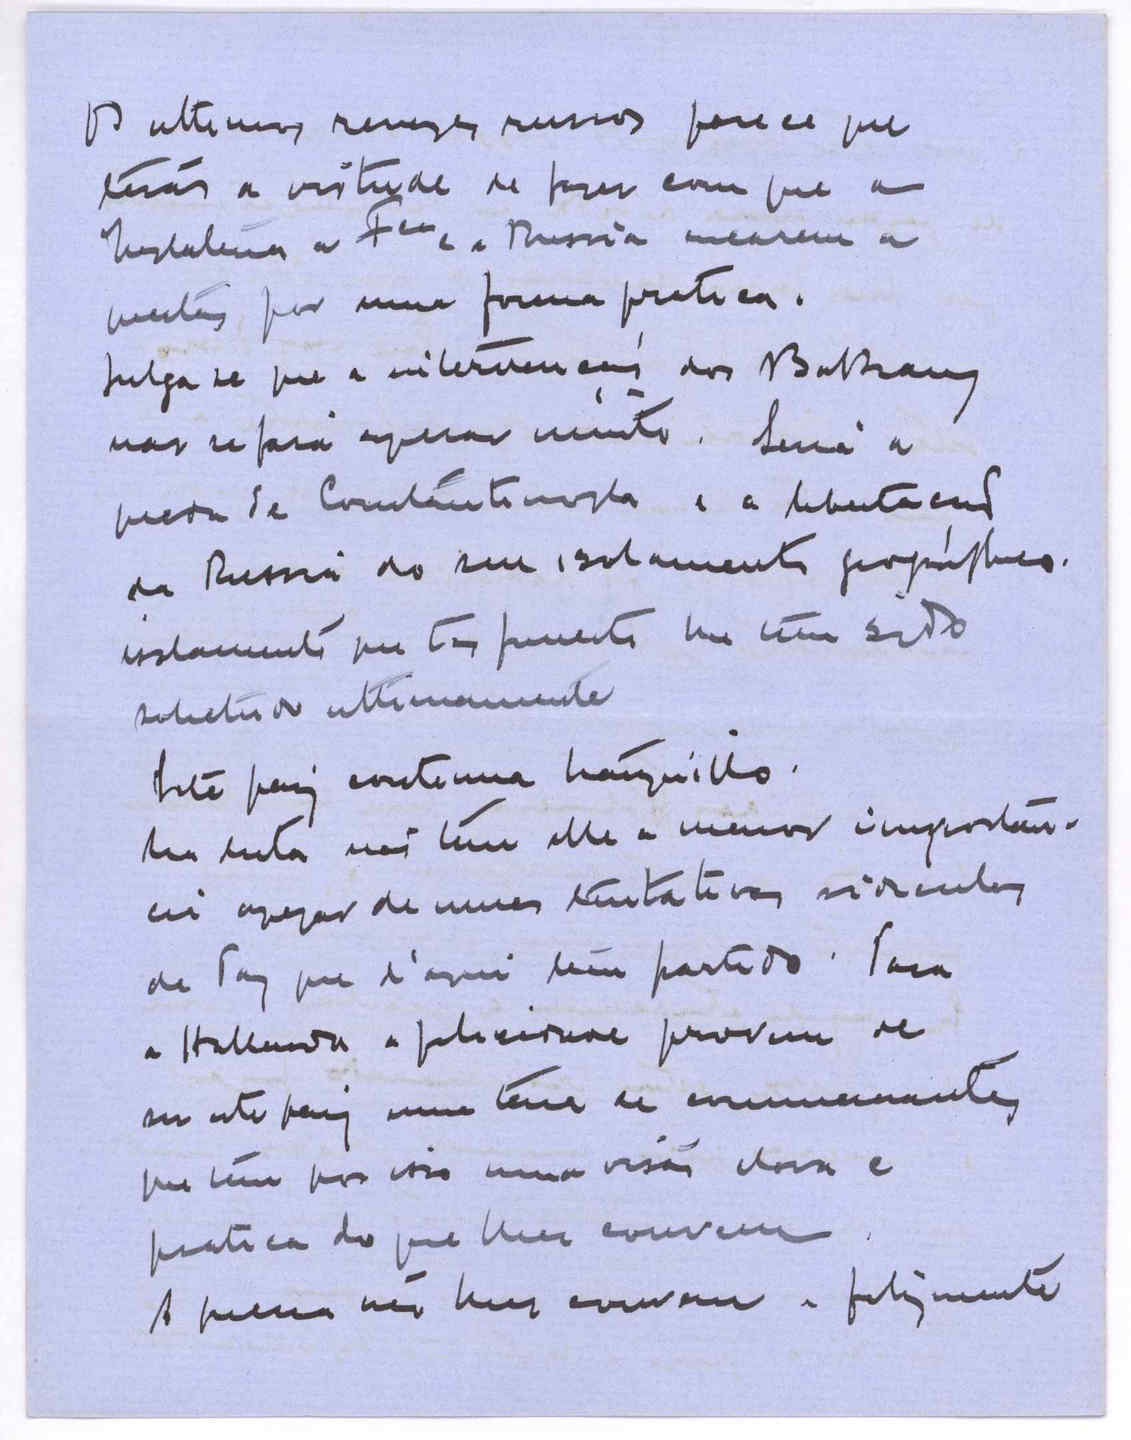 Os ultimos revezes russos parece que
terão a virtude de fazer com que a
Inglaterra a Fça e a Russia encarem a
questão por uma forma pratica.
Julga-se que a intervenção dos Balkans
não se fará esperar muito. Será a
queda de Constantinopla e a libertação
da Russia do seu isolamento geographico.
isolamento que tão funesto lhe tem sido
sobretudo ultimamente
Este paiz continua tranquillo.
Na lucta não tem elle a menor importan-
cia apezar de umas tentativas ridiculas
de Paz que d'aqui tem partido. Para
a Hollanda a felicidade provem de
ser este paiz uma terra de commerciantes
que tem por isso uma visão clara e
pratica do que lhes convem.
A guerra não lhes convem e felizmente